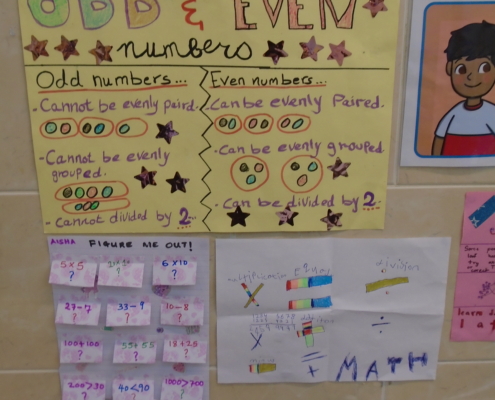 ODD & EVEN
numbers
Odd numbers...
- Cannot be evenly paird.
- Cannot be evenly
grouped.
- Cannot divided by 2
Even numbers...
- Can be evenly Paired.
- Can be evenly grouped.
- Can be divided by 2
AISHA FIGURE ME OUT!
5x5
?
?
6x10
?
27-7
?
33-9
?
10-8
?
100+100
?
55+55
?
18+25
?
200>30
?
40<90
?
1000>700
?
division
÷
X
=
+
MATH